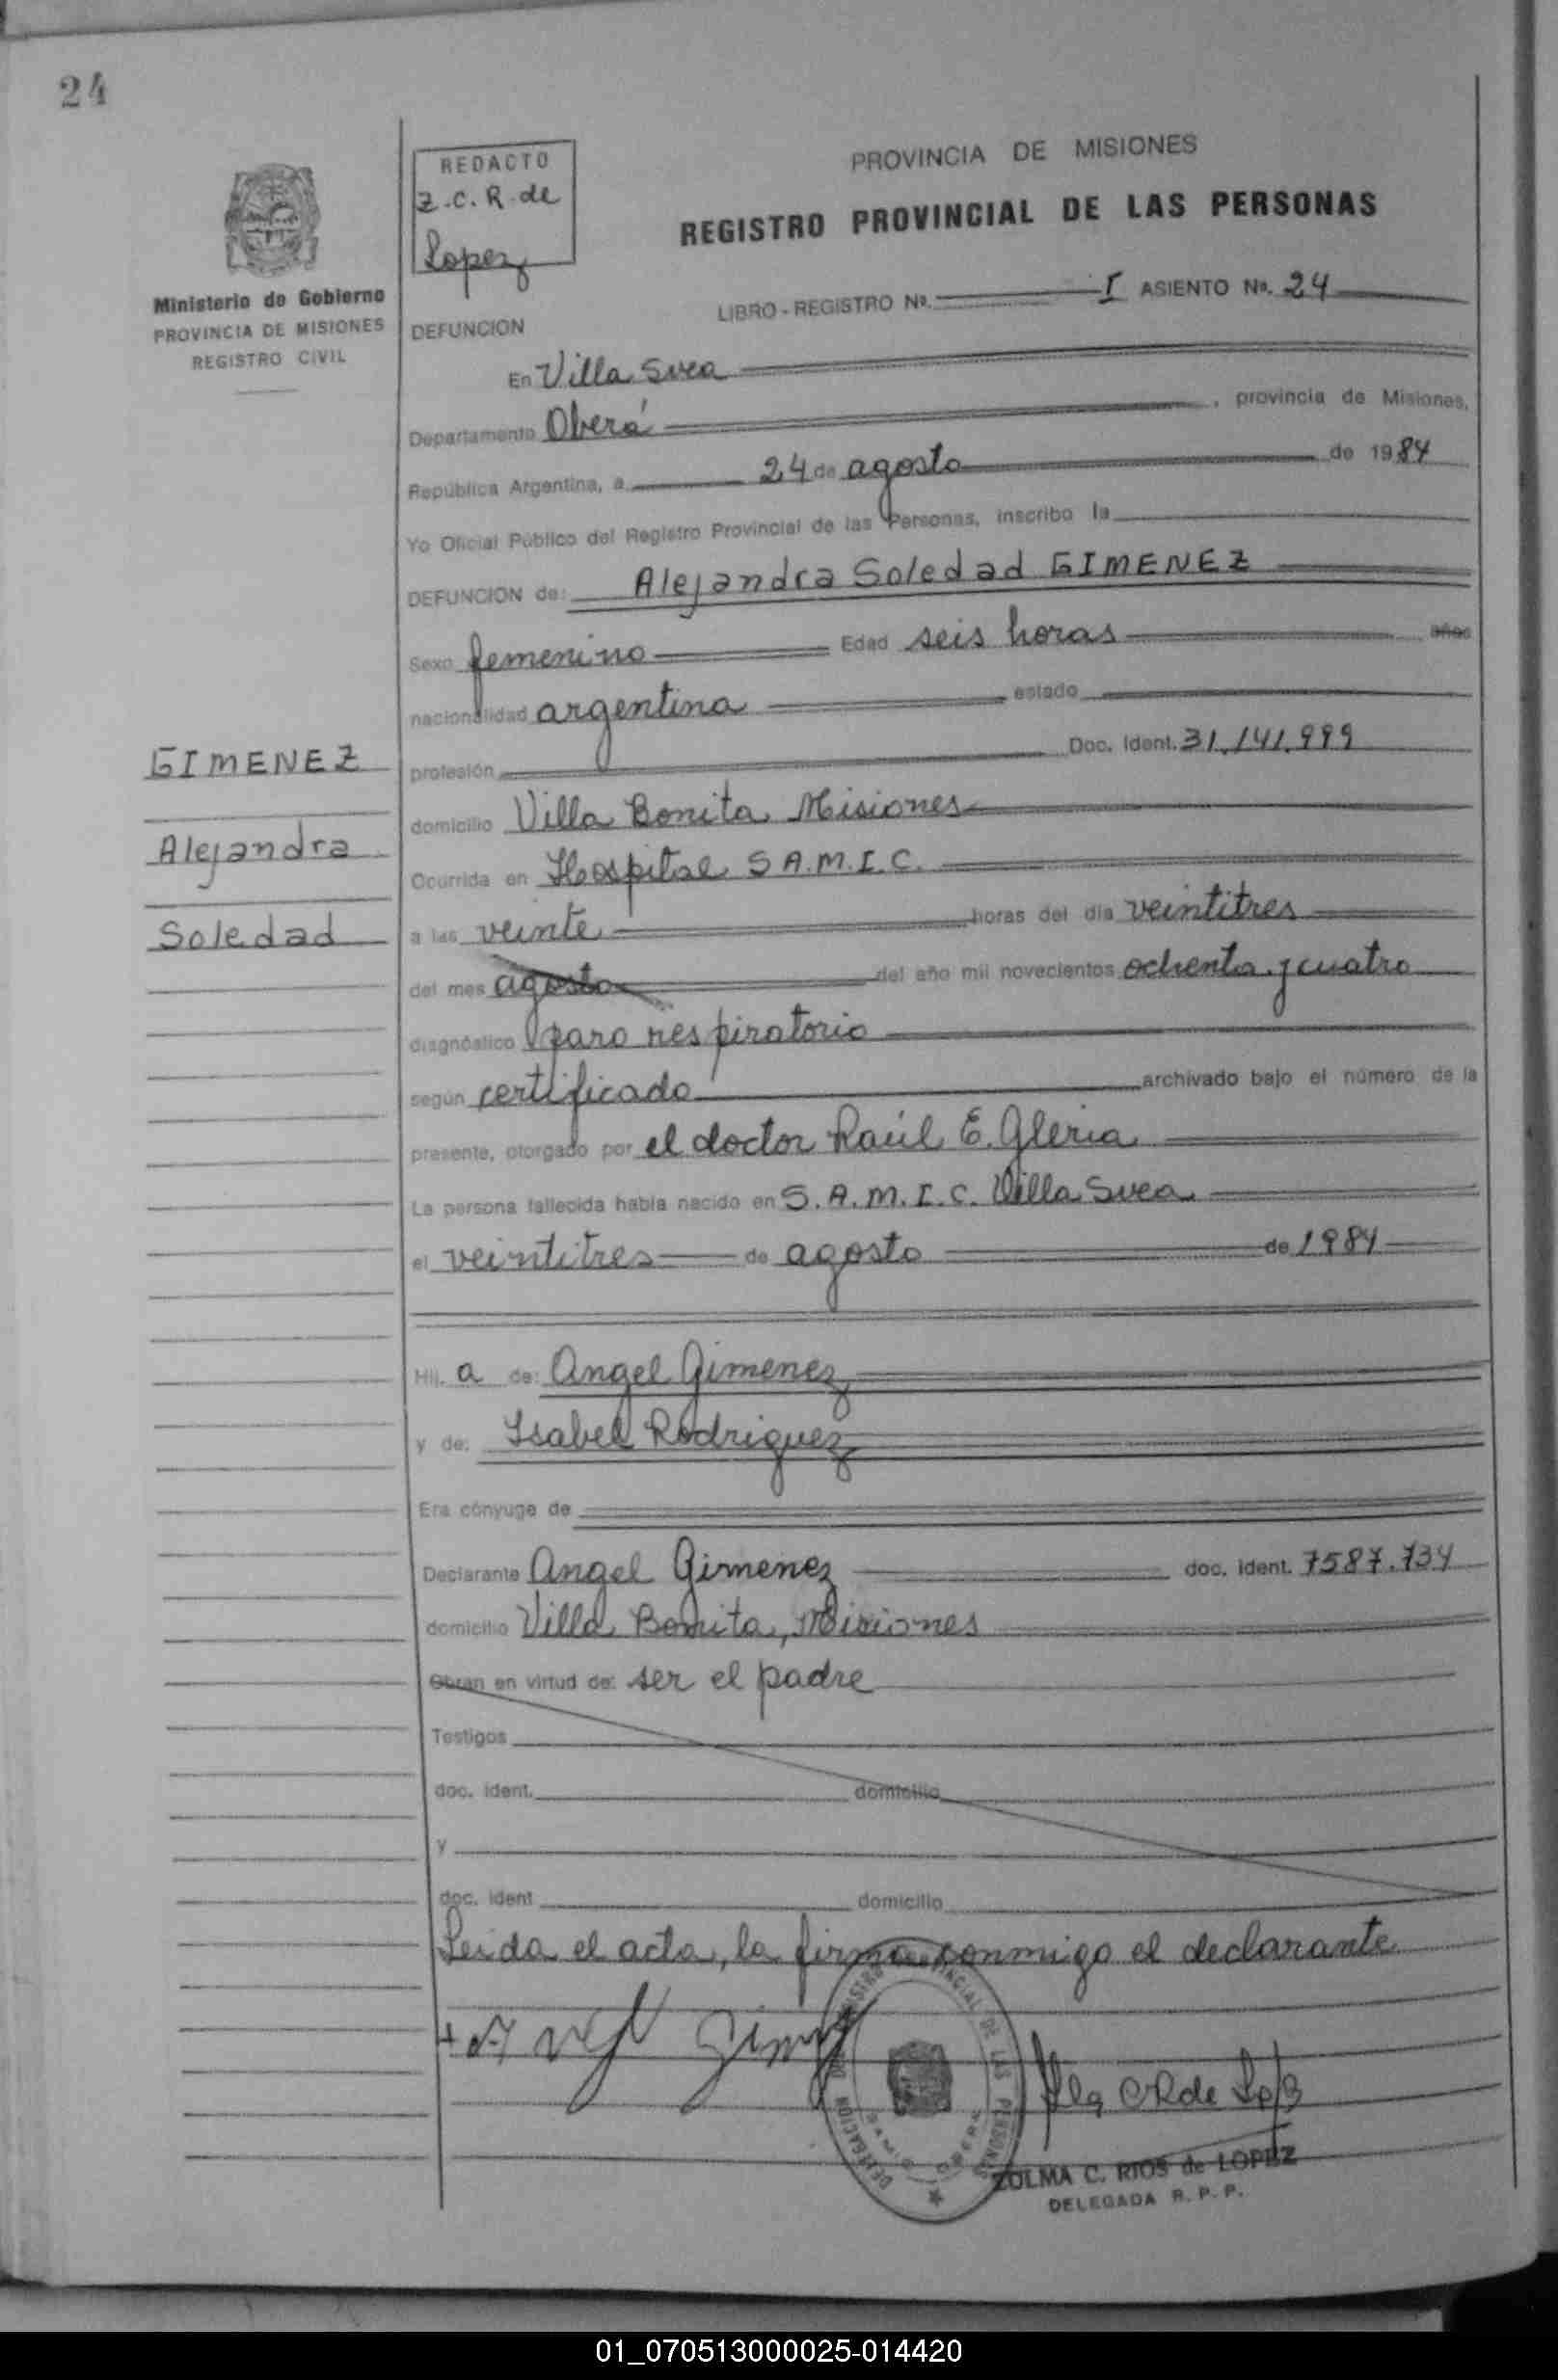 24
REDACTO
Z.C.R. de
Lopez
PROVINCIA DE MISIONES
REGISTRO PROVINCIAL DE LAS PERSONAS
Ministerio de Gobierno
PROVINCIA DE MISIONES
REGISTRO CIVIL
LIBRO - REGISTRO Nº. I ASIENTO Nº. 24
DEFUNCION
En Villa Svea
Departamento Oberá, provincia de Misiones,
República Argentina, a 24 de agosto de 1984
Yo Oficial Público del Registro Provincial de las Personas, inscribo la
DEFUNCION de: Alejandra Soledad GIMENEZ
Sexo femenino Edad seis horas años
nacionalidad argentina estado
GIMENEZ
Alejandra
Soledad
profesión Doc. Ident. 31.141.999
domicilio Villa Bonita, Misiones
Ocurrida en Hospital S A.M.I.C.
a las veinte horas del día veintitres
del mes agosto del año mil novecientos ochenta y cuatro
diagnóstico paro respiratorio
según certificado archivado bajo el número de la
presente, otorgado por el doctor Raúl E. Gleria
La persona fallecida había nacido en S.A.M.I.C. Villa Svea
el veintitres de agosto de 1984
Hij. a de: Angel Gimenez
y de: Isabel Rodriguez
Era cónyuge de
Declarante Angel Gimenez doc. ident. 7587.734
domicilio Villa Bonita, Misiones
Obran en virtud de: ser el padre
Testigos
doc. ident. domicilio
y
doc. ident domicilio
Leida el acta, la firma conmigo el declarante
DELEGACION DO REGISTRO PROVINCIAL DE LAS PERSONAS
SAMIC OBERA
ZULMA C. RIOS de LOPEZ
DELEGADA R. P. P.
01_070513000025-014420